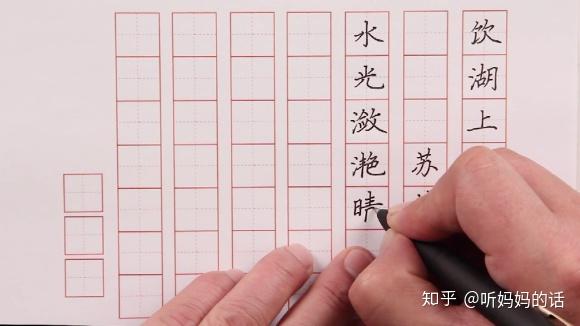 饮湖上
苏
水光潋滟晴
知乎 @听妈妈的话